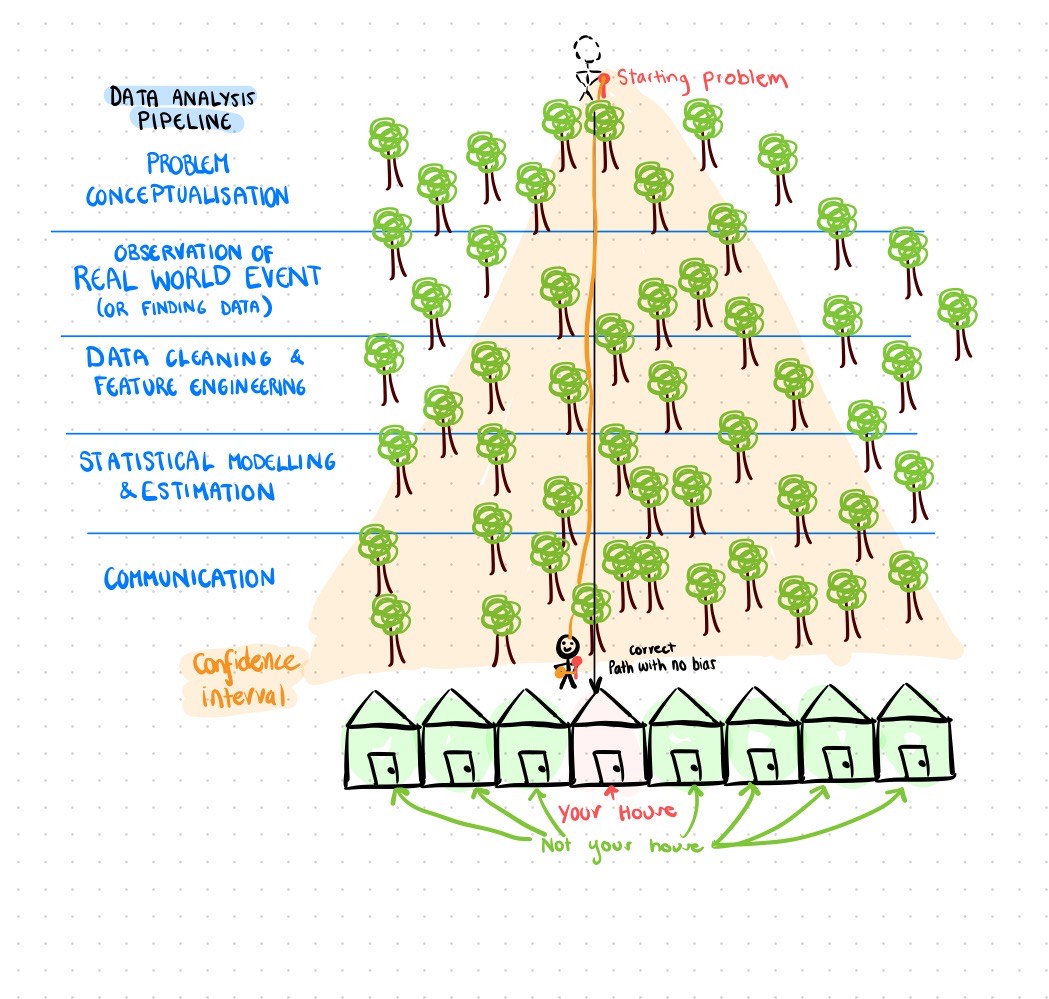 Starting problem
DATA ANALYSIS
PIPELINE
PROBLEM
CONCEPTUALISATION
OBSERVATION OF
REAL WORLD EVENT
(OR FINDING DATA)
DATA CLEANING &
FEATURE ENGINEERING
STATISTICAL MODELLING
& ESTIMATION
COMMUNICATION
Confidence
interval
correct
Path with no bias
Your House
Not your house